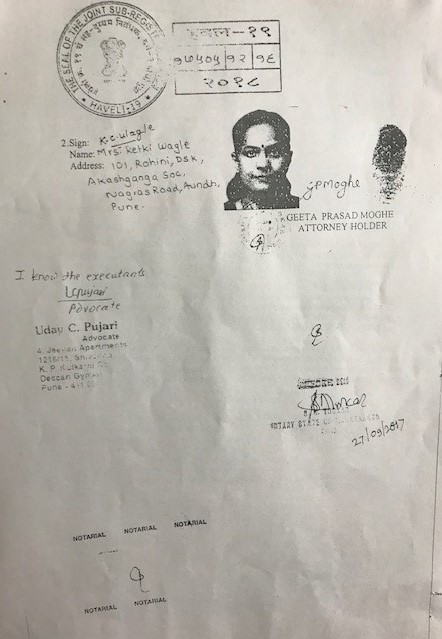 THE SEAL OF THE JOINT SUB-REGISTR
HAVELI-19
हवल-१९
१७५०५ १२ १६
२०१८
2.Sign: K.C. Wagle
Name: Mrs. Ketki Wagle
Address: 101, Rohini, DSK,
Akashganga Soc,
Nagras Road, Aundh,
Pune.
GPMoghe
GEETA PRASAD MOGHE
ATTORNEY HOLDER
I know the executants
UCPujari
Advocate
Uday C. Pujari
Advocate
4, Jeevan Apartments
K. P. Kulkarni
Deccan Gym
Pune - 411
NOTARY STATE OF
27/09/2017
NOTARIAL NOTARIAL NOTARIAL
NOTARIAL NOTARIAL